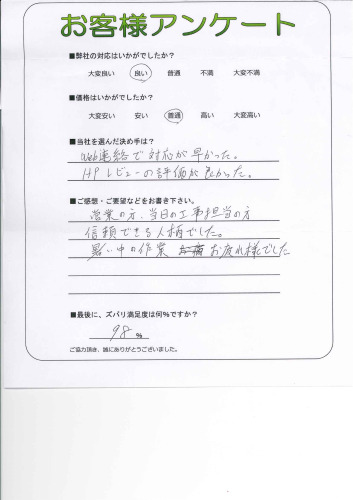 お客様アンケート
■弊社の対応はいかがでしたか？
大変良い 良い 普通 不満 大変不満
■価格はいかがでしたか？
大変安い 安い 普通 高い 大変高い
■当社を選んだ決め手は？
Web連絡で対応が早かった。
HPレビューの評価が良かった。
■ご感想・ご要望などをお書き下さい。
営業の方、当日の工事担当の方
信頼できる人柄でした。
暑い中の作業 お疲れ様でした
■最後に、ズバリ満足度は何%ですか？
98 %
ご協力頂き、誠にありがとうございました。